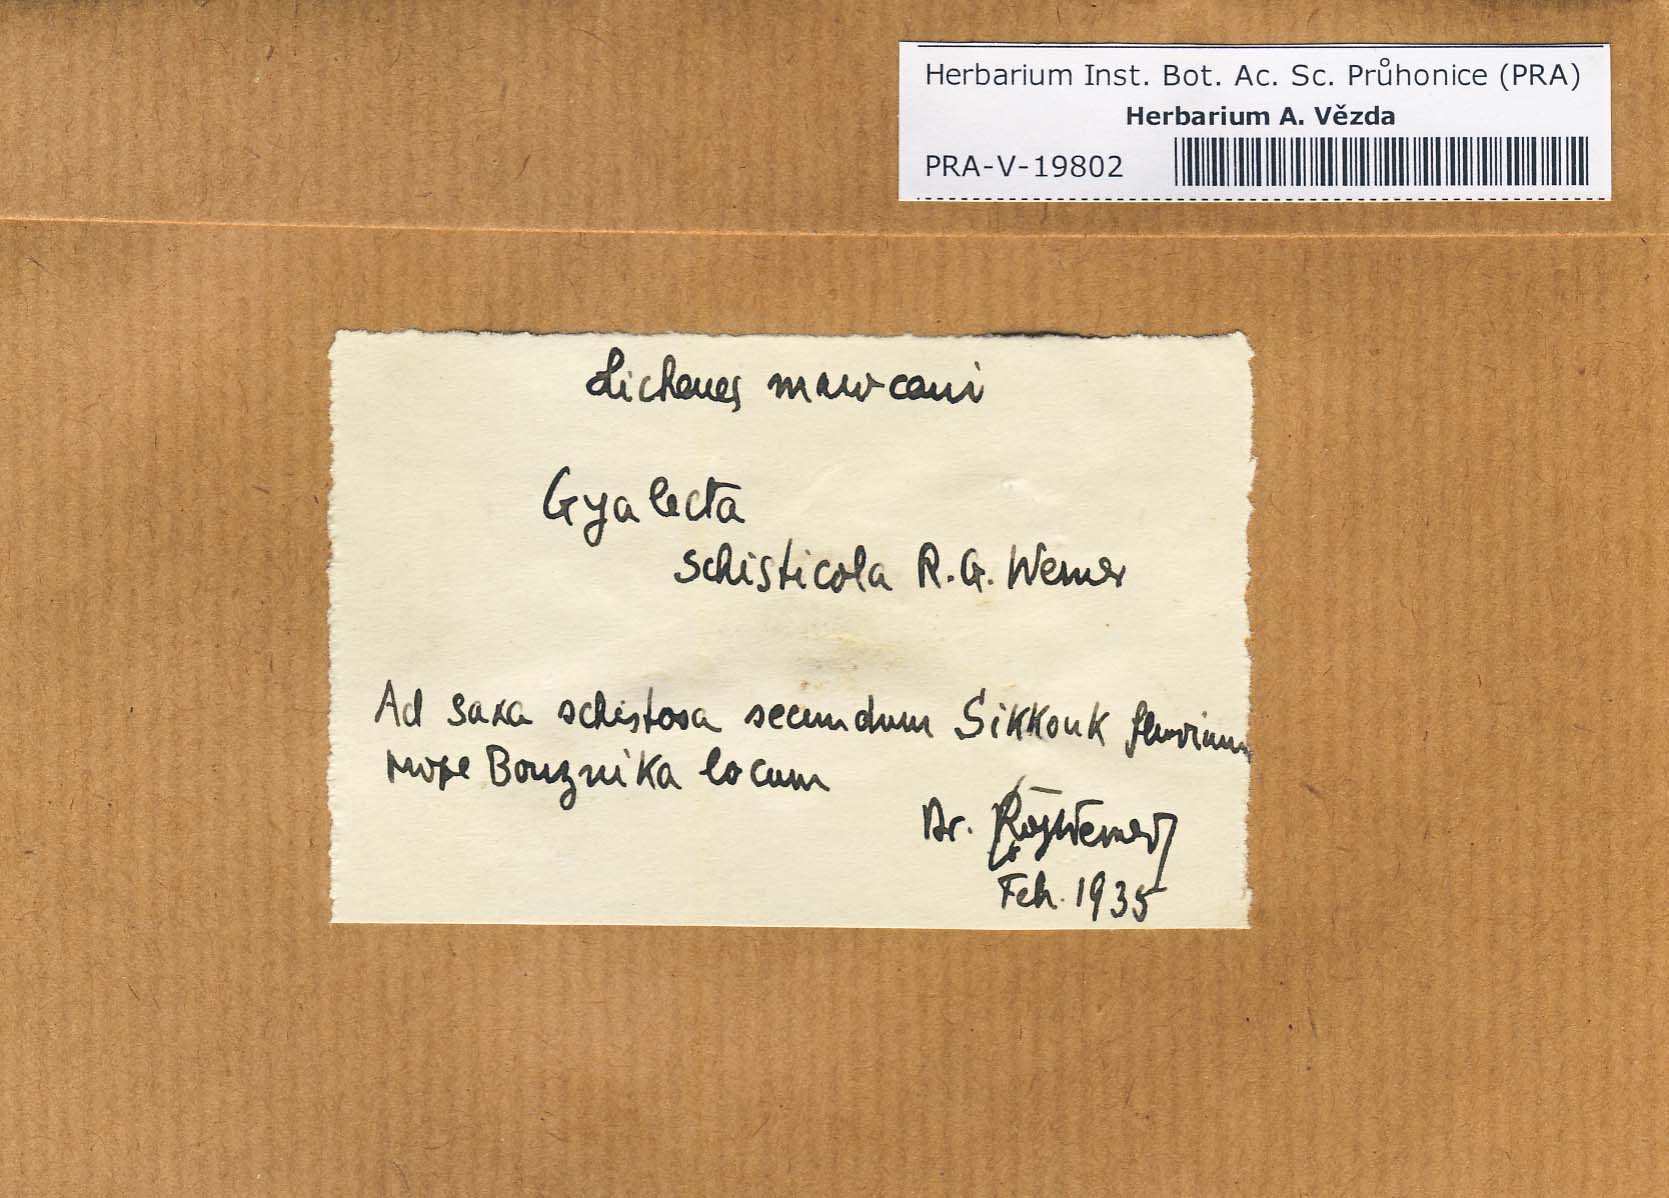 Herbarium Inst. Bot. Ac. Sc. Průhonice (PRA)
Herbarium A. Vězda
PRA-V-19802
Lichenes maroccani
Gyalecta
schisticola R.G. Werner
Ad saxa schistosa secundum Sikkouk fluvium
prope Bouznika locum
Dr. Werner
Feb. 1935